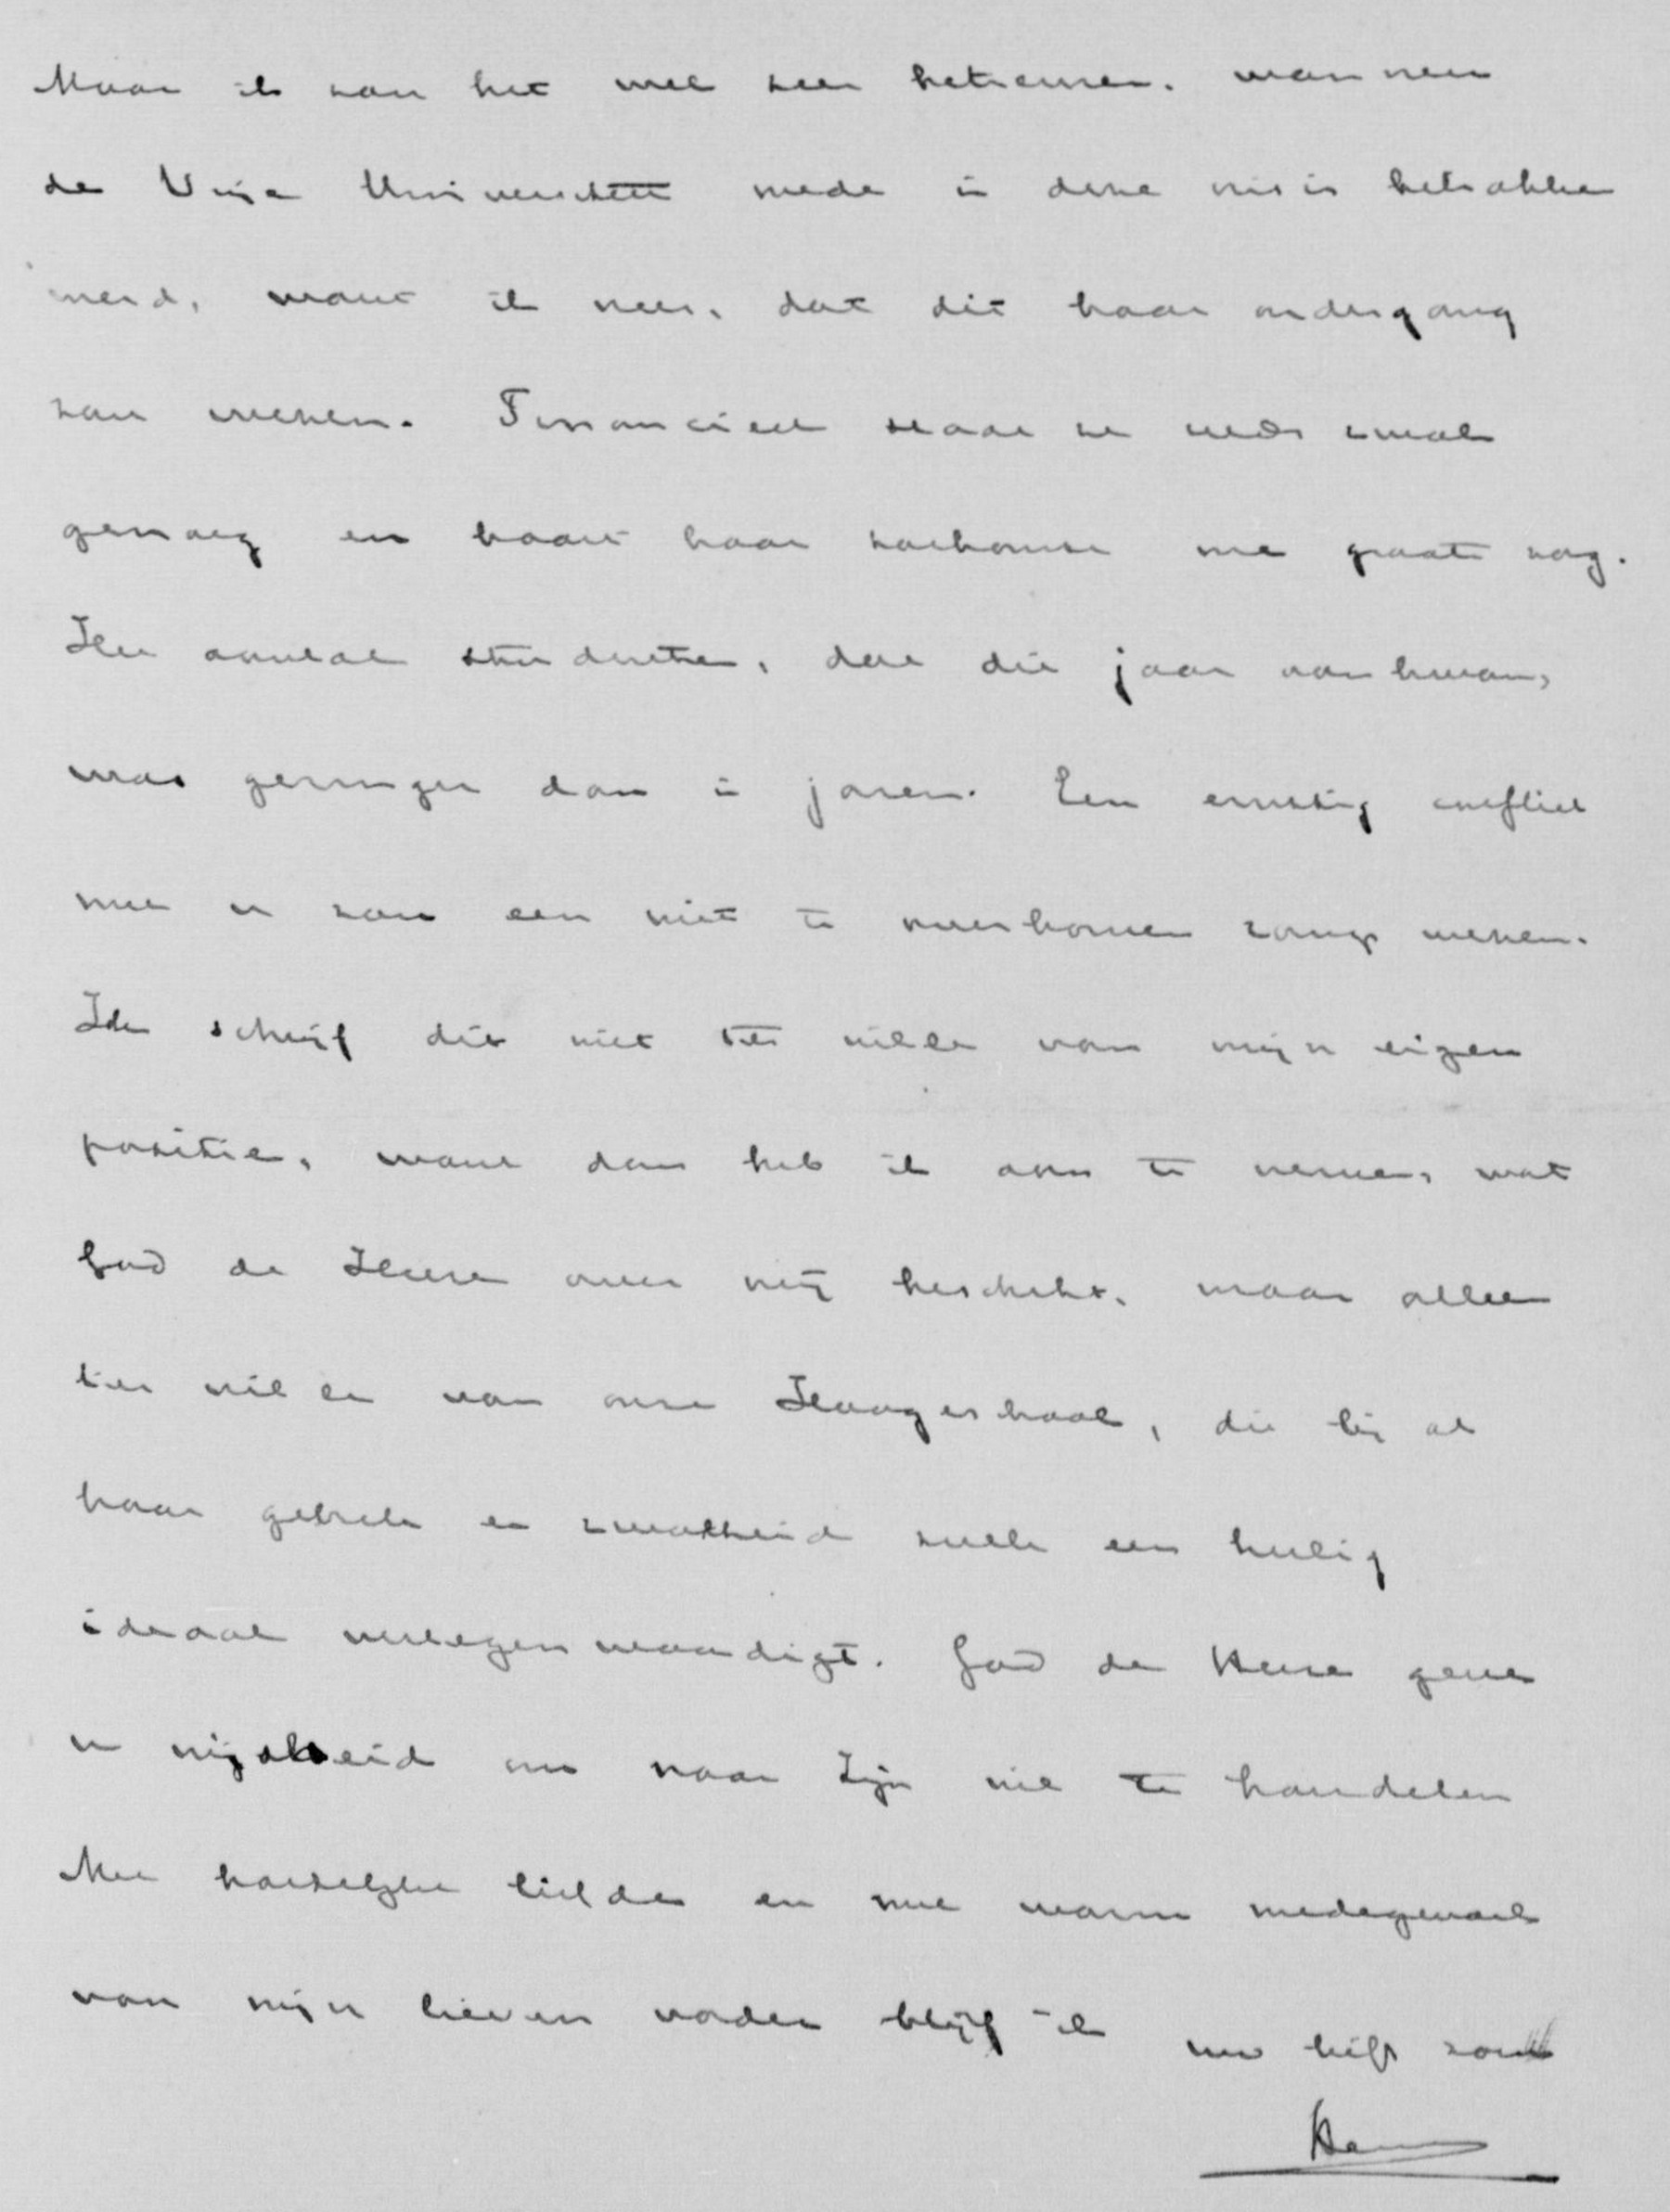 Maar ik zou het wel zeer betreuren, wanneer
de Vrije Universiteit mede in deze crisis betrokken
werd, want ik vrees, dat dit haar ondergang
zou wezen. Financieel staat ze reeds zwak
genoeg en baart haar toekomst me groote zorg.
Het aantal studenten, dat dit jaar aankwam,
was geringer dan in jaren. Een ernstig conflict
met u zou een niet te overkomen ramp wezen.
Ik schrijf dit niet ter wille van mijn eigen
positie, want dan heb ik aan te nemen, wat
God de Heere over mij beschikt, maar alleen
ter wille van onze Hoogeschool, die bij al
haar gebrek en zwakheid toch een heilig
ideaal vertegenwoordigt. God de Heere geve
u wijsheid om naar Zijn wil te handelen
Met hartelijke liefde en met warm medegevoel
voor mijn lieven vader blijf ik uw liefh zoon